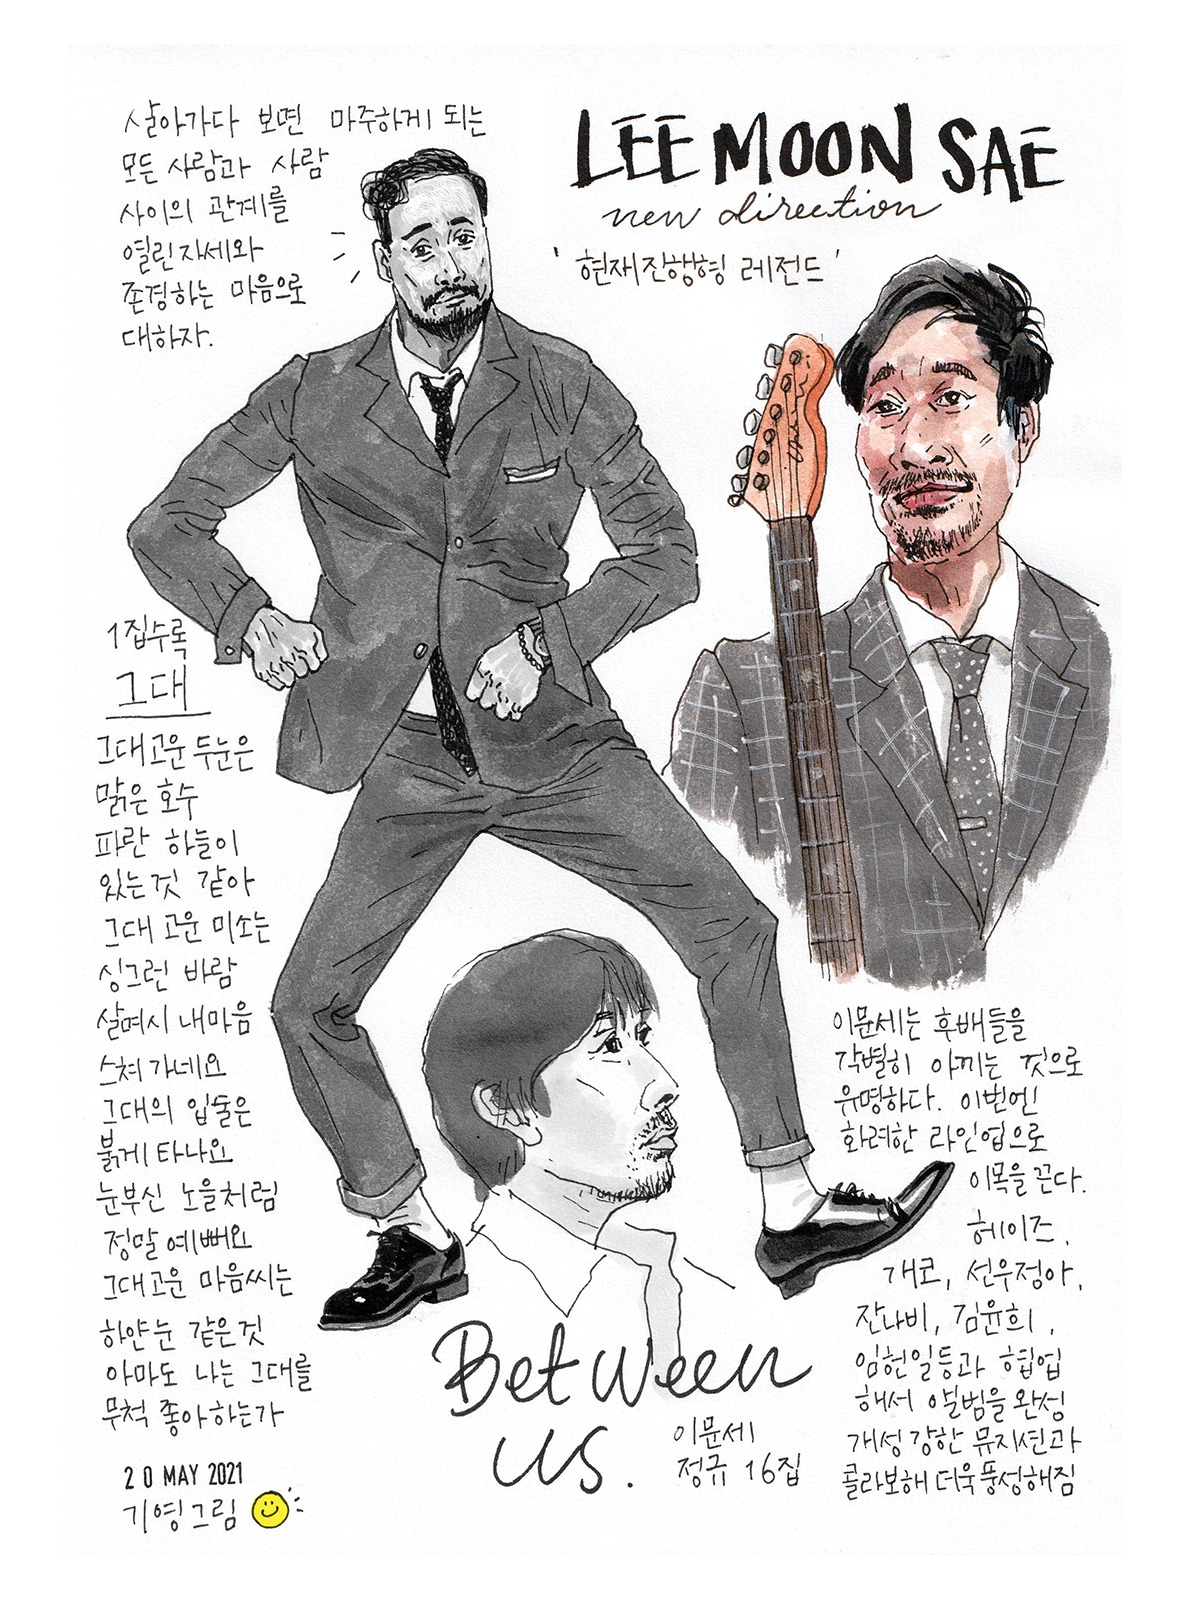 살아가다 보면 마주하게 되는
모든 사람과 사람
사이의 관계를
열린자세와
존경하는 마음으로
대하자.
LEE MOON SAE
new direction
'현재진행형 레전드'
1집수록
그대
그대고운 두눈은
맑은 호수
파란 하늘이
있는것 같아
그대 고운 미소는
싱그런 바람
살며시 내마음
스쳐가네요
그대의 입술은
붉게 타나요
눈부신 노을처럼
정말 예뻐요
그대고운 마음씨는
하얀눈 같은것
아마도 나는 그대를
무척 좋아하는가
20 MAY 2021
기영그림
Between
us.
이문세
정규 16집
이문세는 후배들을
각별히 아끼는 것으로
유명하다. 이번엔
화려한 라인업으로
이목을 끈다.
헤이즈,
개코, 선우정아,
잔나비, 김윤희,
임헌일등과 협업
해서 앨범을 완성
개성 강한 뮤지션과
콜라보해 더욱 풍성해짐